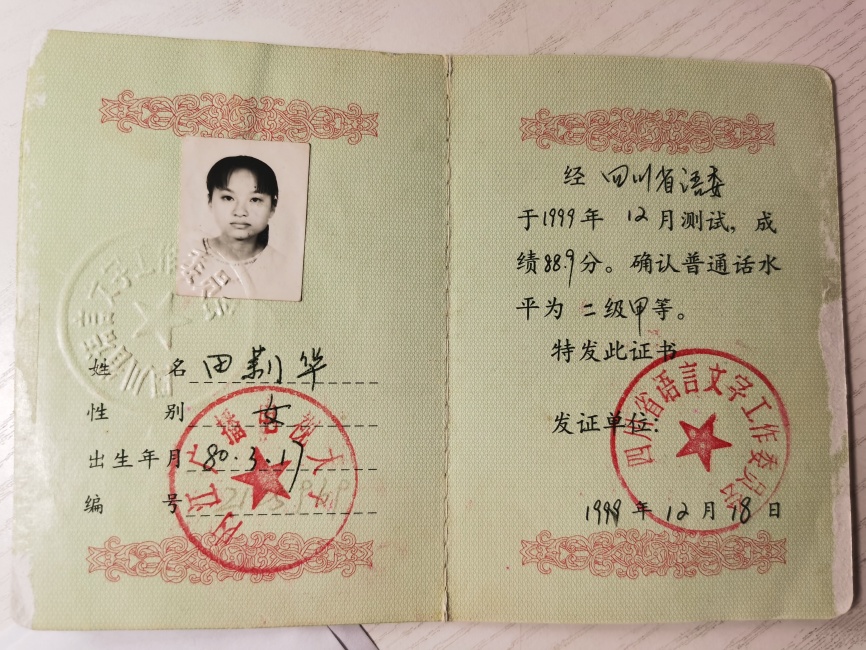 姓 名 田莉华
性 别 女
出生年月 80.3.17
编 号
经 四川省语委
于1999年 12月测试，成
绩88.9分。确认普通话水
平为 二级甲等。
特发此证书
发证单位：
四川省语言文字工作委员会
1999年12月18日